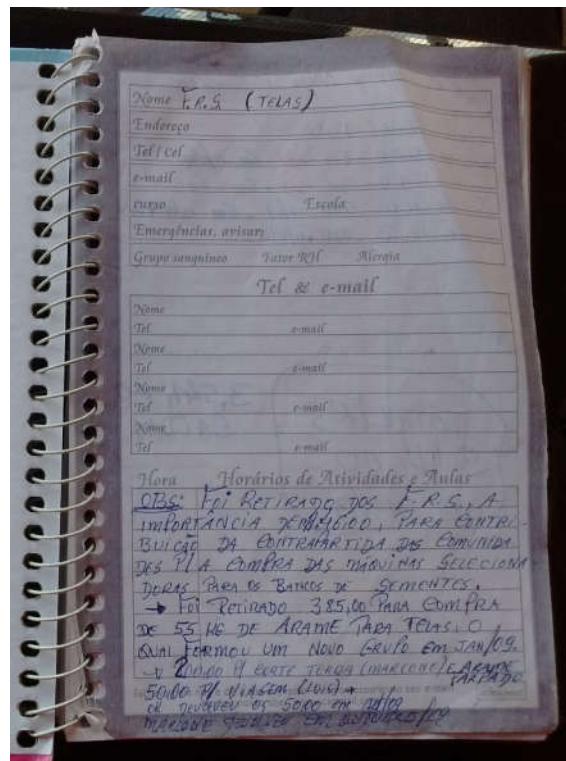 Nome F.R.S. (TELAS)
Endereço
Tel / Cel
e-mail
curso Escola
Emergências, avisar:
Grupo sanguíneo Fator RH Alergia
Tel & e-mail
Nome
Tel e-mail
Nome
Tel e-mail
Nome
Tel e-mail
Nome
Tel e-mail
Hora Horários de Atividades e Aulas
OBS: FOI RETIRADO DOS F.R.S., A
IMPORTÂNCIA DE PARA CONTRI-
BUIÇÃO DA CONTRAPARTIDA DAS COMUNIDA
DES P/ A COMPRA DAS MÁQUINAS SELECIONA
DORAS PARA OS BANCOS DE SEMENTES.
→ FOI RETIRADO 385,00 PARA COMPRA
DE 55 KG DE ARAME PARA TELAS, O
QUAL FORMOU UM NOVO GRUPO EM JAN/09.
200,00 P/ CORTE TERRA (MARCONE) E ARAME
FARPADO
50,00 P/ VIAGEM (LUIS) →
DEVOLVEU OS 50,00 EM
MARCONE EM